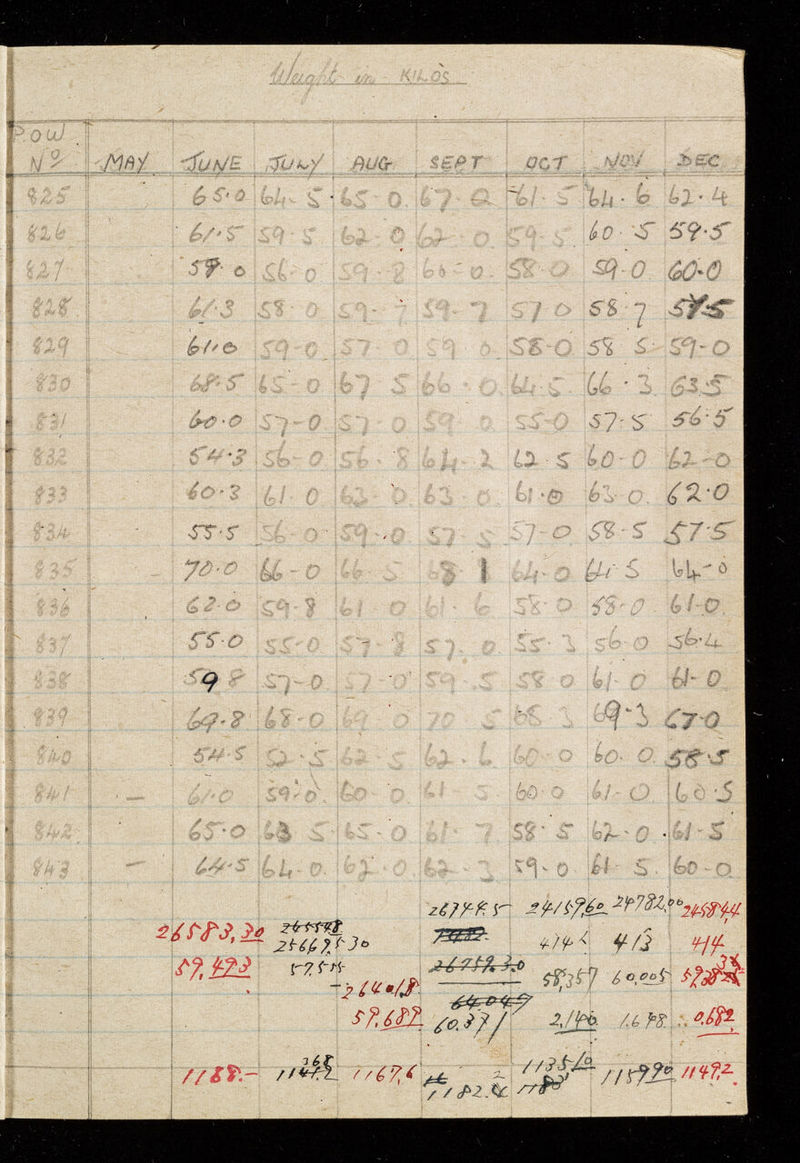 Weight in KILOS
P.O.W. Nº MAY JUNE JULY AUG SEPT OCT NOV DEC
825 65.0 64-5 65-0 67-0 61-5 64.6 62.4
826 61.5 59.5 62-0 62-0 59-5 60-5 59.5
827 56-0 59-8 60-0 58-0 59-0 60.0
828 61.3 58-0 59-7 59-7 57-0 58-7
829 61.0 59-0 57-0 59-0 58-0 58-5 59-0
830 68.5 65-0 67-5 66-0 64-5 66.3 63.5
831 60.0 57-0 57-0 59-0 55-0 57-5 56.5
832 54.3 56-0 56-8 64-2 62-5 60-0 62-0
833 60.3 61-0 63-0 63-0 61.0 63-0 62.0
834 55.5 56-0 59-0 57-5 57-0 58-5 57.5
835 70.0 66-0 66-5 68-1 64-0 64-0
836 62.0 59-8 61-0 61-6 58-0 58-0 61-0
837 55.0 55-0 57-8 57-0 55-3 56-0 56.4
838 59 8 57-0 57-0 59-5 58-0 61-0 61-0
839 69.8 68-0 69-0 70-5 68-3 69-3 67.0
840 54.5 52-5 62-5 62.6 60-0 60-0 58.5
841 — 61.0 59-0 60-0 61-5 60-0 61-0 60.5
842 65.0 63-5 65-0 61-7 58-5 62-0 61-5
843 — 64.5 64-0 62-0 62-3 59-0 61-5 60-0
26744.5 24159,60 24782,00
26583,30
25669,530 413 414
59,493 26759.30 58,357 60,005
26401,8
59,689 60.371 2,140 1.648 0,682
1188.- 1167,6 1182. 1135,10 1159,90 1149,2